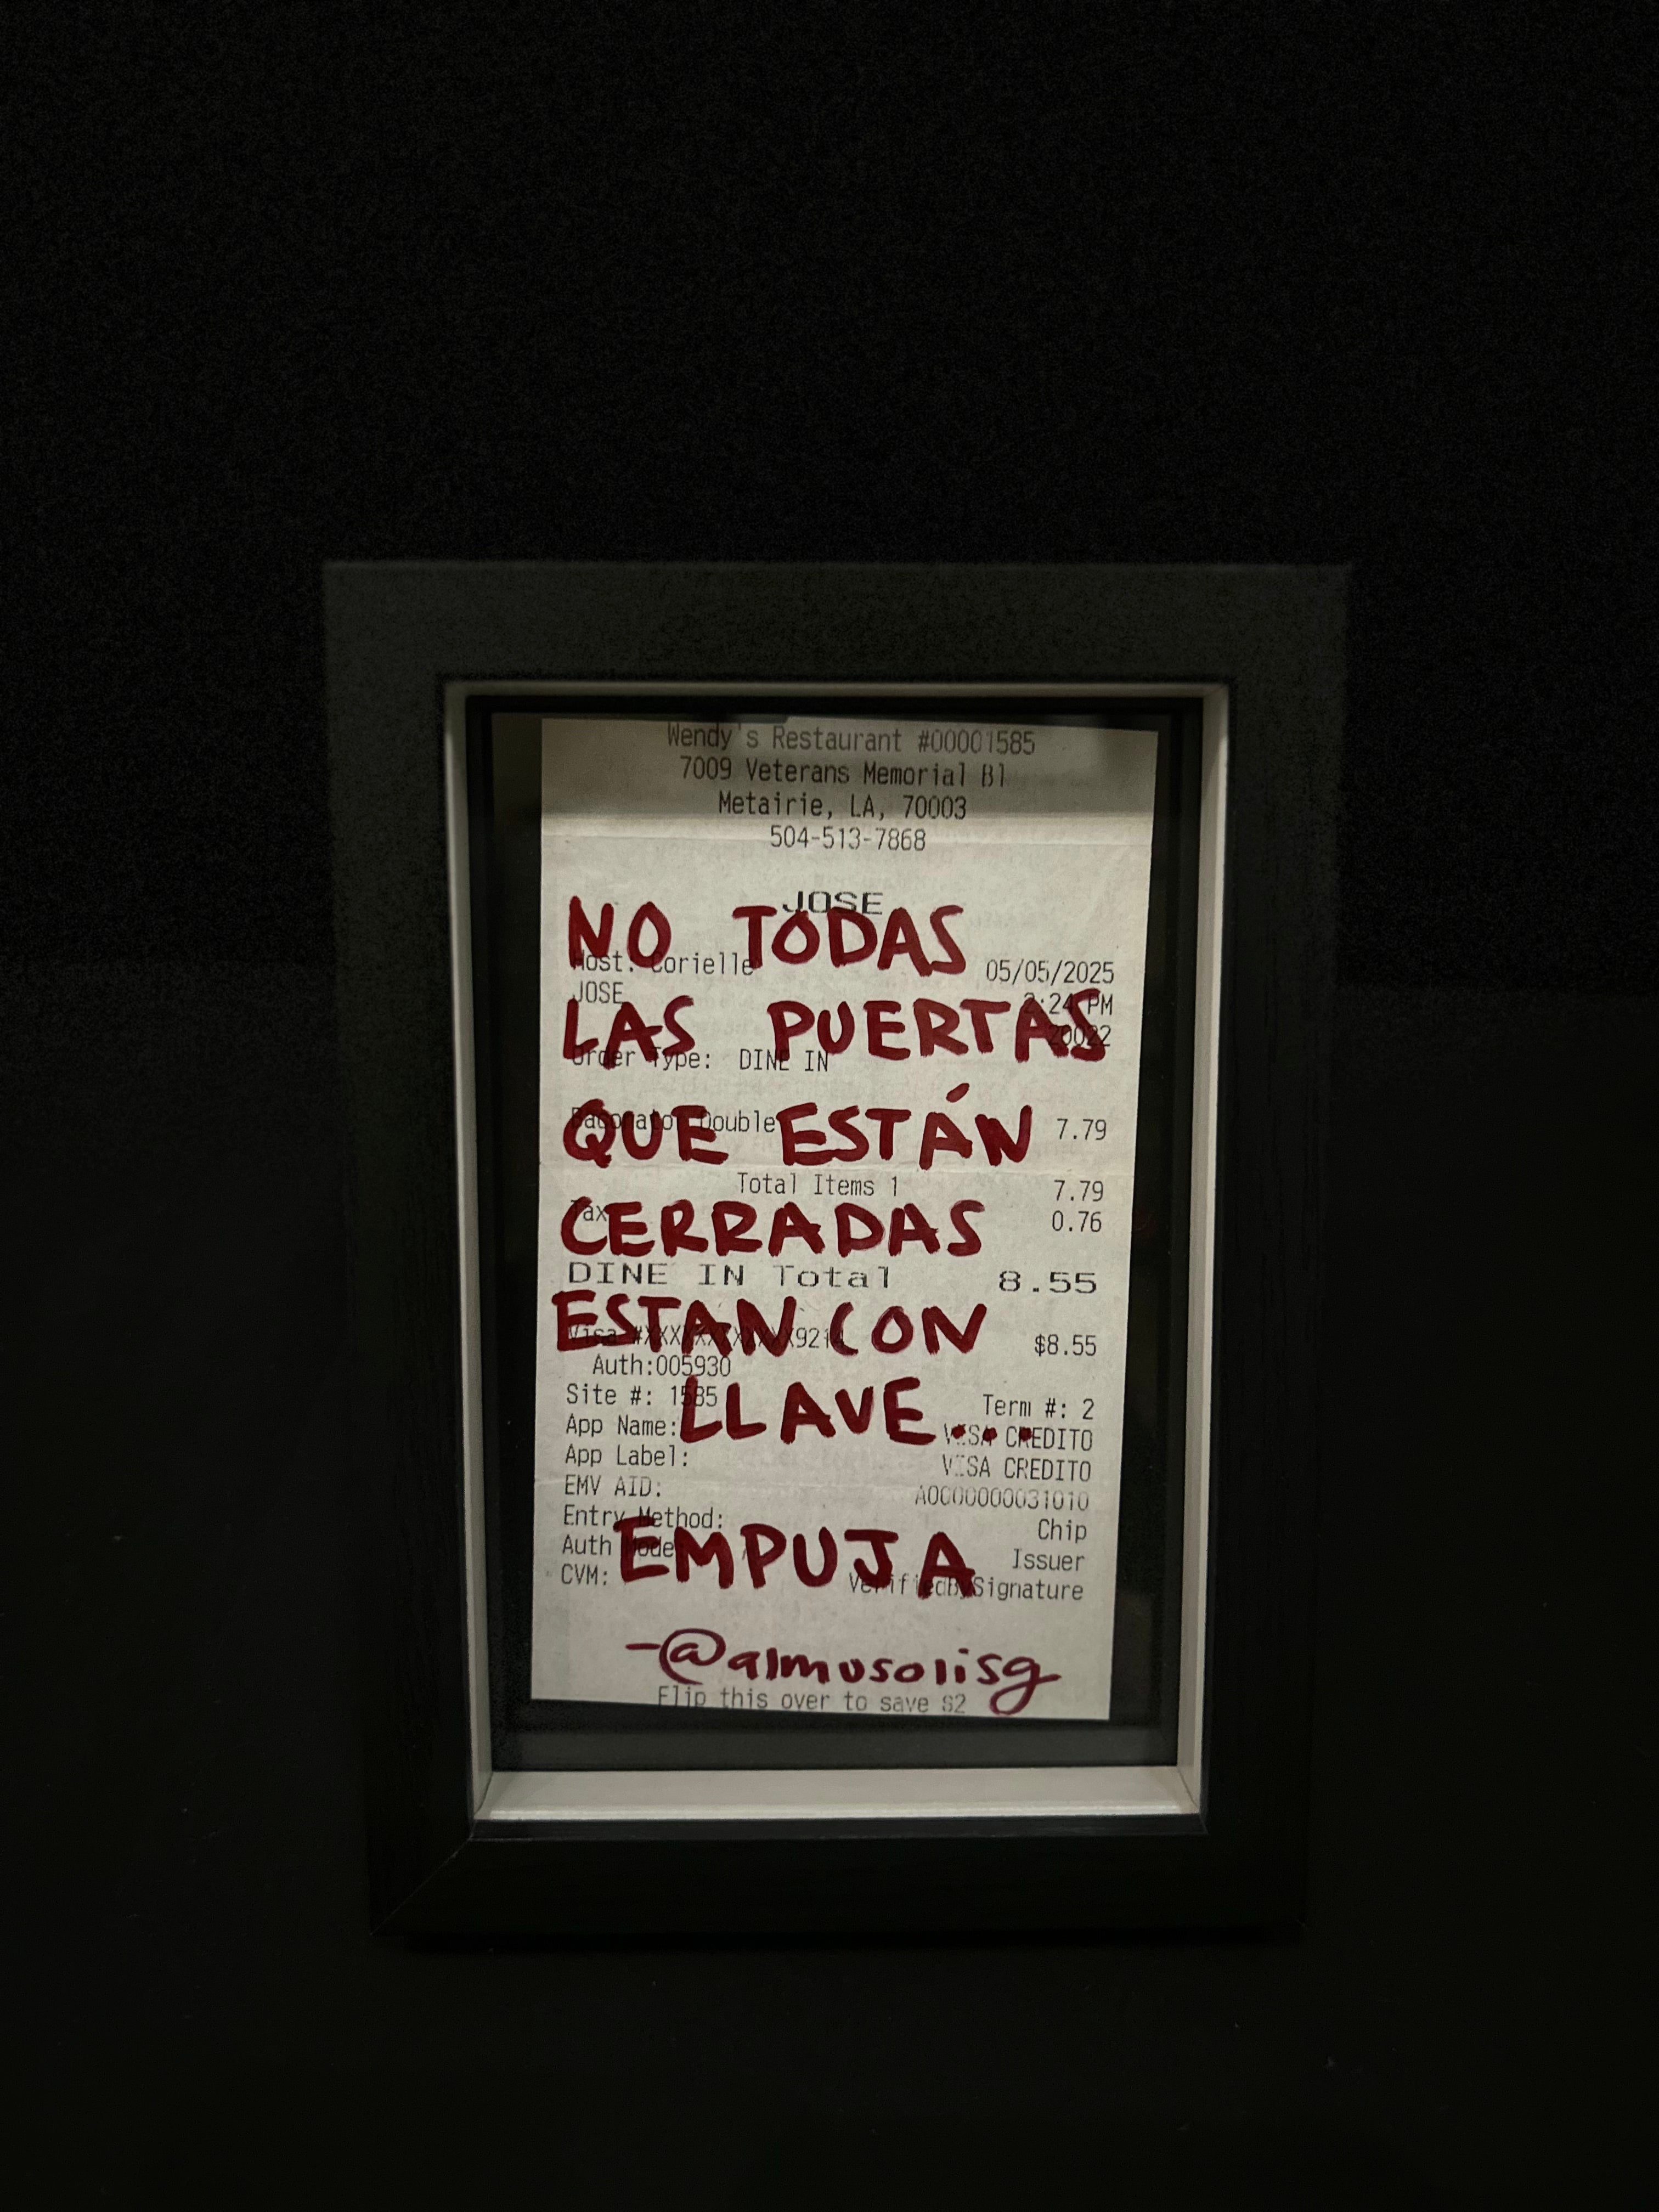 Wendy's Restaurant #00001585
7009 Veterans Memorial Bl
Metairie, LA, 70003
504-513-7868
JOSE
NO TODAS
Host: Corielle 05/05/2025
JOSE 2:24 PM
LAS PUERTAS
20022
Order Type: DINE IN
QUE ESTÁN
Baconator Double 7.79
Total Items 1 7.79
Tax 0.76
CERRADAS
DINE IN Total 8.55
ESTAN CON
Visa $8.55
Auth:005930
LLAVE...
Site #: 1585 Term #: 2
App Name: VISA CREDITO
App Label: VISA CREDITO
EMV AID: A0000000031010
Entry Method: Chip
EMPUJA
Auth Mode: Issuer
CVM: VerifiedBySignature
-@almusolisg
Flip this over to save $2